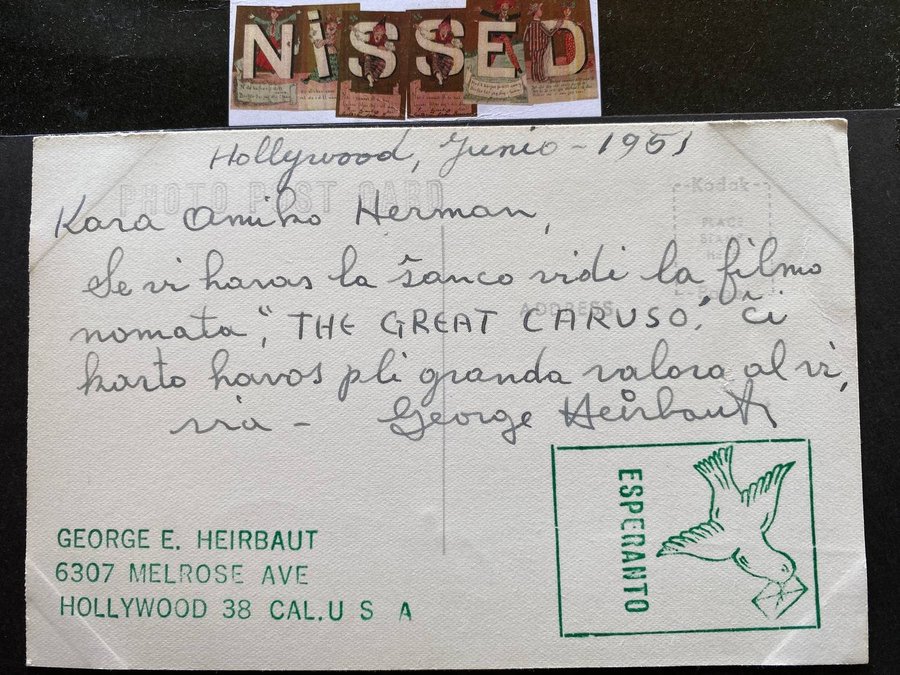 NiSSED
Hollywood, Junio - 1951
PHOTO POST CARD
Kara Amiko Herman,
Kodak
PLACE
STAMP
HERE
Se vi havas la ŝanco vidi la filmo
ADDRESS
nomata, "THE GREAT CARUSO," ĉi
karto havos pli granda valora al vi,
via - George Heirbaut
ESPERANTO
GEORGE E. HEIRBAUT
6307 MELROSE AVE
HOLLYWOOD 38 CAL. U S A